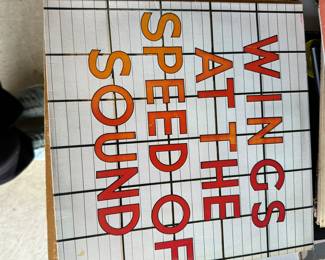 WINGS
AT THE
SPEED OF
SOUND